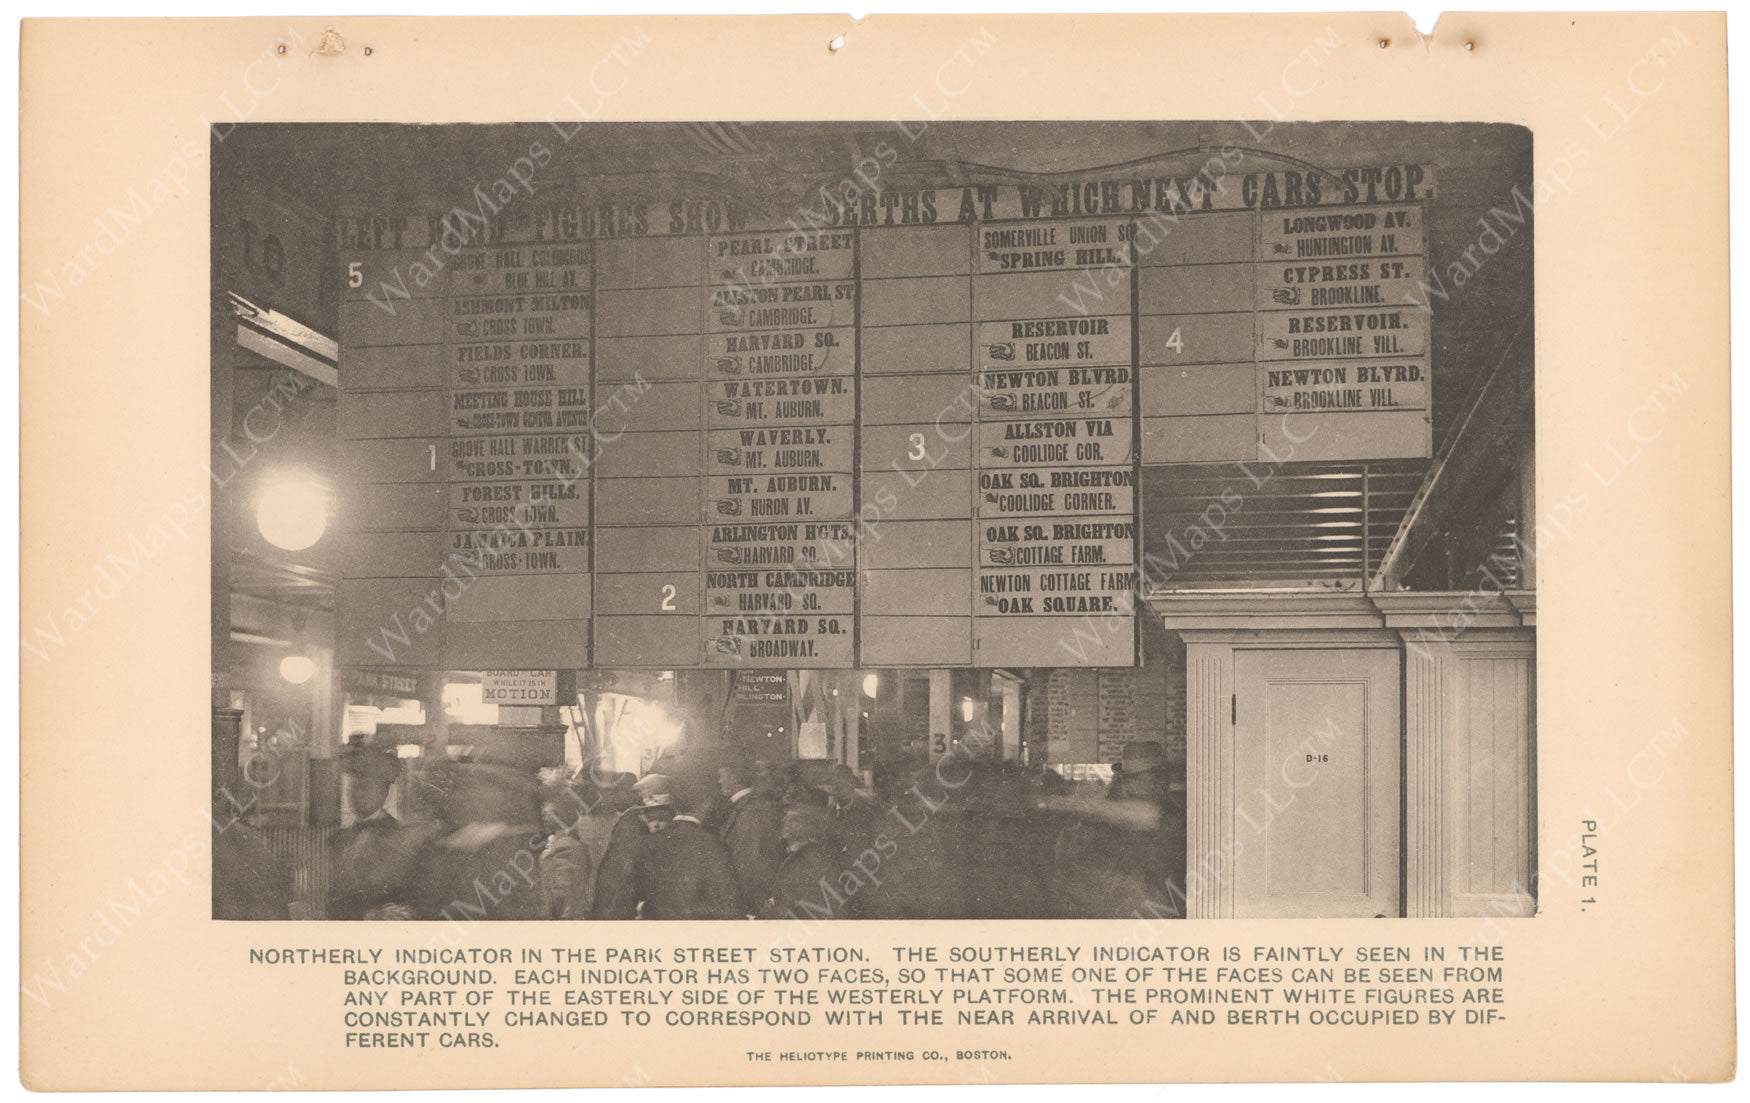 TO
LEFT HAND FIGURES SHOW BERTHS AT WHICH NEXT CARS STOP.
5
GROVE HALL COLUMBUS
BLUE HILL AV.
ASHMONT MILTON
CROSS TOWN.
FIELDS CORNER.
CROSS TOWN.
MEETING HOUSE HILL
CROSS-TOWN GENEVA AVENUE
1
GROVE HALL WARREN ST.
CROSS-TOWN.
FOREST HILLS.
CROSS TOWN.
JAMAICA PLAIN
CROSS-TOWN.
PEARL STREET
CAMBRIDGE.
ALLSTON PEARL ST
CAMBRIDGE.
HARVARD SQ.
CAMBRIDGE.
WATERTOWN.
MT. AUBURN.
WAVERLY.
MT. AUBURN.
MT. AUBURN.
HURON AV.
ARLINGTON HGTS.
HARVARD SQ.
2
NORTH CAMBRIDGE
HARVARD SQ.
HARVARD SQ.
BROADWAY.
SOMERVILLE UNION SQ
SPRING HILL.
RESERVOIR
BEACON ST.
NEWTON BLVRD.
BEACON ST.
3
ALLSTON VIA
COOLIDGE COR.
OAK SQ. BRIGHTON
COOLIDGE CORNER.
OAK SQ. BRIGHTON
COTTAGE FARM.
NEWTON COTTAGE FARM
OAK SQUARE.
LONGWOOD AV.
HUNTINGTON AV.
CYPRESS ST.
BROOKLINE.
4
RESERVOIR.
BROOKLINE VILL.
NEWTON BLVRD.
BROOKLINE VILL.
PARK STREET
BOARD CAR
WHILE IT IS IN
MOTION.
NEWTON-
HILL-
ARLINGTON-
3
D-16
PLATE 1.
NORTHERLY INDICATOR IN THE PARK STREET STATION. THE SOUTHERLY INDICATOR IS FAINTLY SEEN IN THE
BACKGROUND. EACH INDICATOR HAS TWO FACES, SO THAT SOME ONE OF THE FACES CAN BE SEEN FROM
ANY PART OF THE EASTERLY SIDE OF THE WESTERLY PLATFORM. THE PROMINENT WHITE FIGURES ARE
CONSTANTLY CHANGED TO CORRESPOND WITH THE NEAR ARRIVAL OF AND BERTH OCCUPIED BY DIF-
FERENT CARS.
THE HELIOTYPE PRINTING CO., BOSTON.
WardMaps LLC™